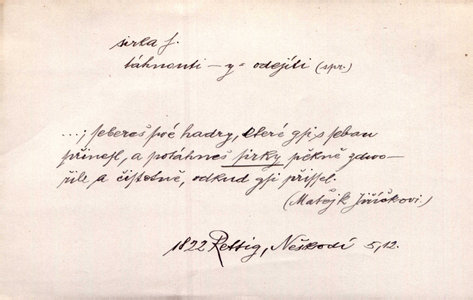 sirka f.
táhnouti – y = odejíti (spr.)
...; sebereš své hadry, které gsi s sebau
přinesl, a potáhneš sirky pěkně zdwo-
řile a čistotně, odkud gsi přissel.
(Matěgk Jiříčkovi.)
1822 Rettig, Neškodí 5,12.